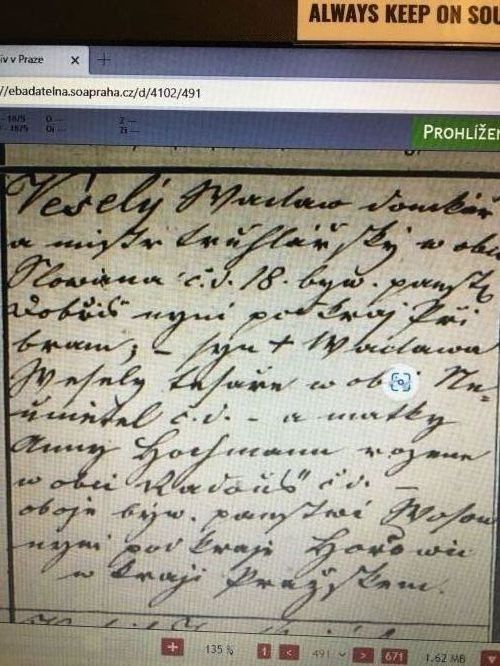 ALWAYS KEEP ON SOU
iv v Praze × +
//ebadatelna.soapraha.cz/d/4102/491
- 1875 O --- Z ---
- 1875 Oi --- Zi ---
PROHLÍŽEN
Veselý Waclaw domkář
a mistr truhlářský w obci
Slowana č.d. 18. býw. panst
Dobřiš nyní podkraj Při
bram; – syn + Waclawa
Wesely tesaře w obci Ne=
umětel č.d. – a matky
Anny Hochmann rozene
w obci Radouš č.d. –
oboje býw. panstwi Wosow
nyni podkraje Hořowic
w kraji Pražskem.
135 % 1 < 491 > 671 1,62 MB